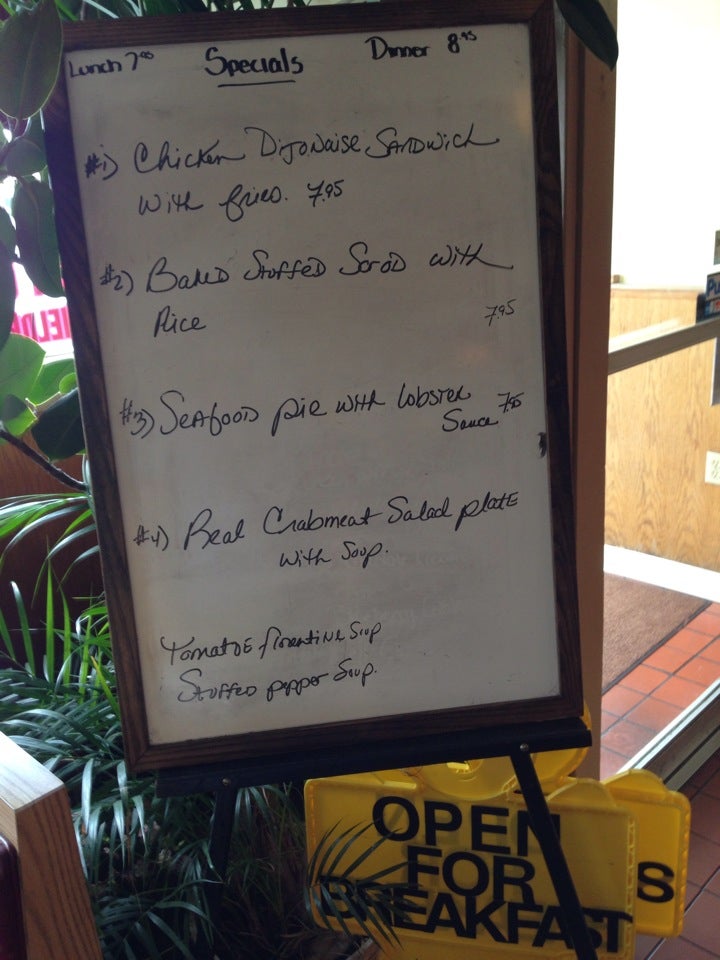 Lunch 7.95 Specials Dinner 8.95
#1) Chicken Dijonaise Sandwich
with fries. 7.95
#2) Baked Stuffed Scrod with
Rice 7.95
#3) Seafood pie with lobster
Sauce 7.95
#4) Real Crabmeat Salad plate
with Soup.
Tomatoe florentine Soup
Stuffed pepper Soup.
OPEN
FOR
BREAKFAST
S